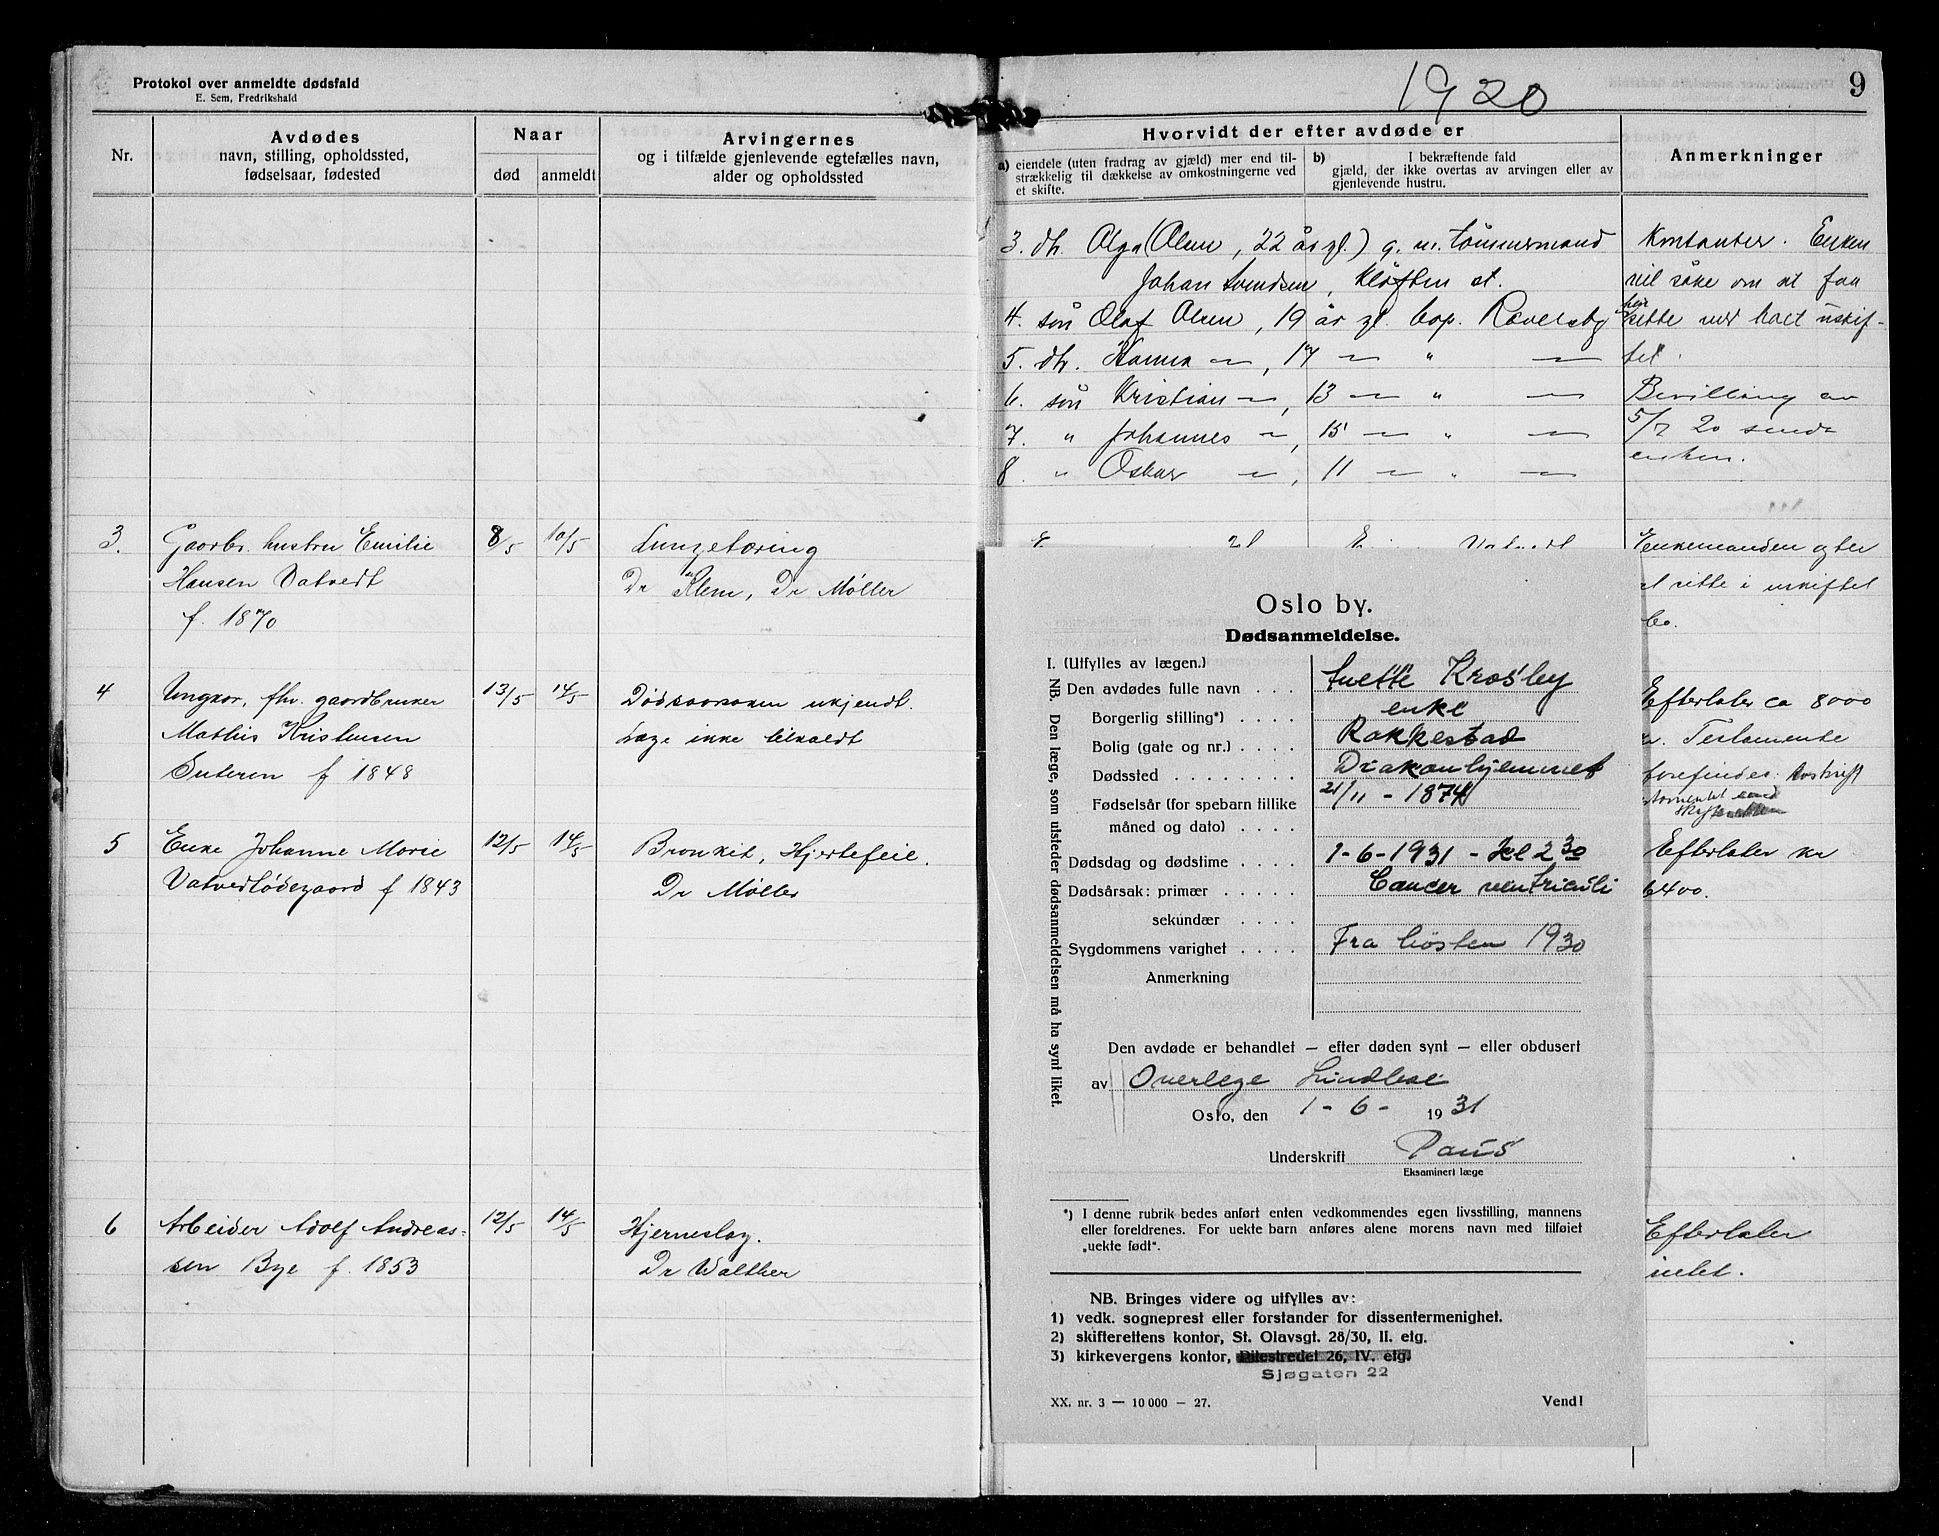 Protokol over anmeldte dødsfald
E. Sem, Fredrikshald
Nr.
Avdødes
navn, stilling, opholdssted,
fødselsaar, fødested
Naar
død
anmeldt
Arvingernes
og i tilfælde gjenlevende egtefælles navn,
alder og opholdssted
3. Gaardbr. hustru Emilie 8/5 10/5 Lungetæring
Hansen Vatvedt Dr Klem, Dr Møller
f. 1870
4 Ungkar, fhv. gaardbruker 13/5 14/5 Dødsaarsaken ukjendt.
Mathis Kristensen Læge ikke tilkaldt
f 1848
5 Enke Johanne Marie 12/5 14/5 Bronkit, Hjertefeil.
Vatvedtødegaard f 1843 Dr Møller
6 Arbeider Adolf Andreas- 12/5 14/5 Hjerneslag.
sen Bye f. 1853 Dr Walther
1920
9
Hvorvidt der efter avdøde er
a) eiendele (uten fradrag av gjæld) mer end til-
strækkelig til dækkelse av omkostningerne ved
et skifte.
b) I bekræftende fald
gjæld, der ikke overtas av arvingen eller av
gjenlevende hustru.
Anmerkninger
3. dtr. Olga (Olsen, 22 år gl.) g. m. tømmermand
Johan Svendsen, Kløften st.
4. søn Olaf Olsen, 19 år gl. bop.
5. dtr. Hanna — , 17 — " —
6. søn Kristian — , 13 — " —
7. " Johannes — , 15 — " —
8. " Oskar — , 11 — " —
Kontanter. Enken
vil søke om at faa
sitte med boet uskif-
tet.
Bevilling av
5/7 20 sendt
enken.
Enkemanden agter
at sitte i uskiftet
bo.
Efterlater ca 8000
kr. Testamente
forefindes. Avskrift
Efterlater kr
6400.
Efterlater
intet.
Oslo by.
Dødsanmeldelse.
I. (Utfylles av lægen.)
NB. Den læge, som utsteder dødsanmeldelsen må ha synt liket.
Den avdødes fulle navn . . . . Krosby
Borgerlig stilling*) . . . . enke
Bolig (gate og nr.) . . . . Rakkestad
Dødssted . . . . . . . . Diakonhjemmet
Fødselsår (for spebarn tillike 21/11 - 1874
måned og dato) . . . .
Dødsdag og dødstime . . . . 1-6-1931 - kl 2 30
Dødsårsak: primær . . . . Cancer ventriculi
sekundær . . . .
Sygdommens varighet . . . . Fra høsten 1930
Anmerkning
Den avdøde er behandlet — efter døden synt — eller obdusert
av Overlege
Oslo, den 1 - 6 - 1931
Underskrift Paus
Eksaminert læge
*) I denne rubrik bedes anført enten vedkommendes egen livsstilling, mannens
eller foreldrenes. For uekte barn anføres alene morens navn med tilføiet
„uekte født“.
NB. Bringes videre og utfylles av:
1) vedk. sogneprest eller forstander for dissentermenighet.
2) skifterettens kontor, St. Olavsgt. 28/30, II. etg.
3) kirkevergens kontor, Pilestredet 26, IV. etg.
Sjøgaten 22
XX. nr. 3 — 10 000 — 27.
Vend!